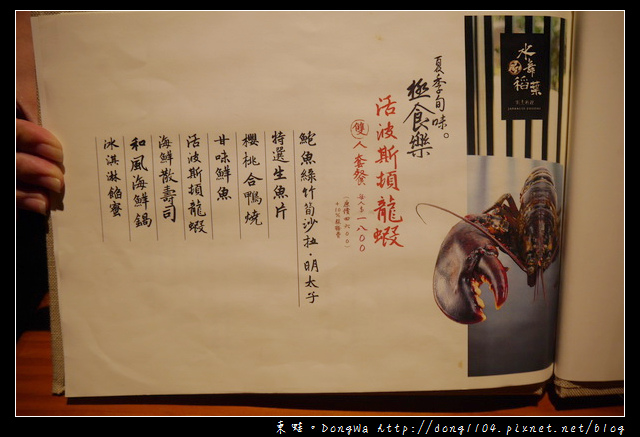 水舞
稻葉
夏季旬味。
極食樂
活波斯頓龍蝦
雙人套餐
每人享一八〇〇
鮑魚綠竹筍沙拉·明太子
特選生魚片
櫻桃合鴨燒
甘味鮮魚
活波斯頓龍蝦
海鮮散壽司
和風海鮮鍋
冰淇淋餡蜜
東蛙。DongWa http://dong1104.pixnet.net/blog